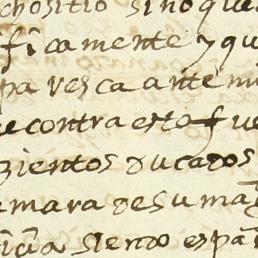 positio sino que
ficamente y qu
parezca ante mi
e contra esto fue
zientos ducados
mara de su mag
siendo espa